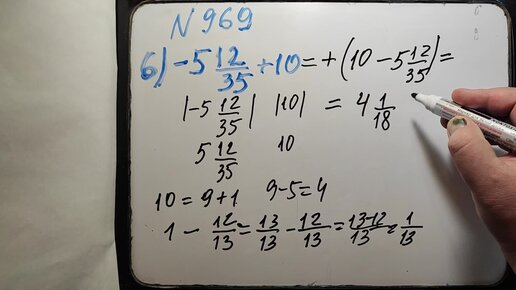 N 969
б) -5 12/35 + 10 = + (10 - 5 12/35) =
|-5 12/35| |10| = 4 1/18
5 12/35 10
10 = 9 + 1 9 - 5 = 4
1 - 12/13 = 13/13 - 12/13 = 13-12/13 = 1/13